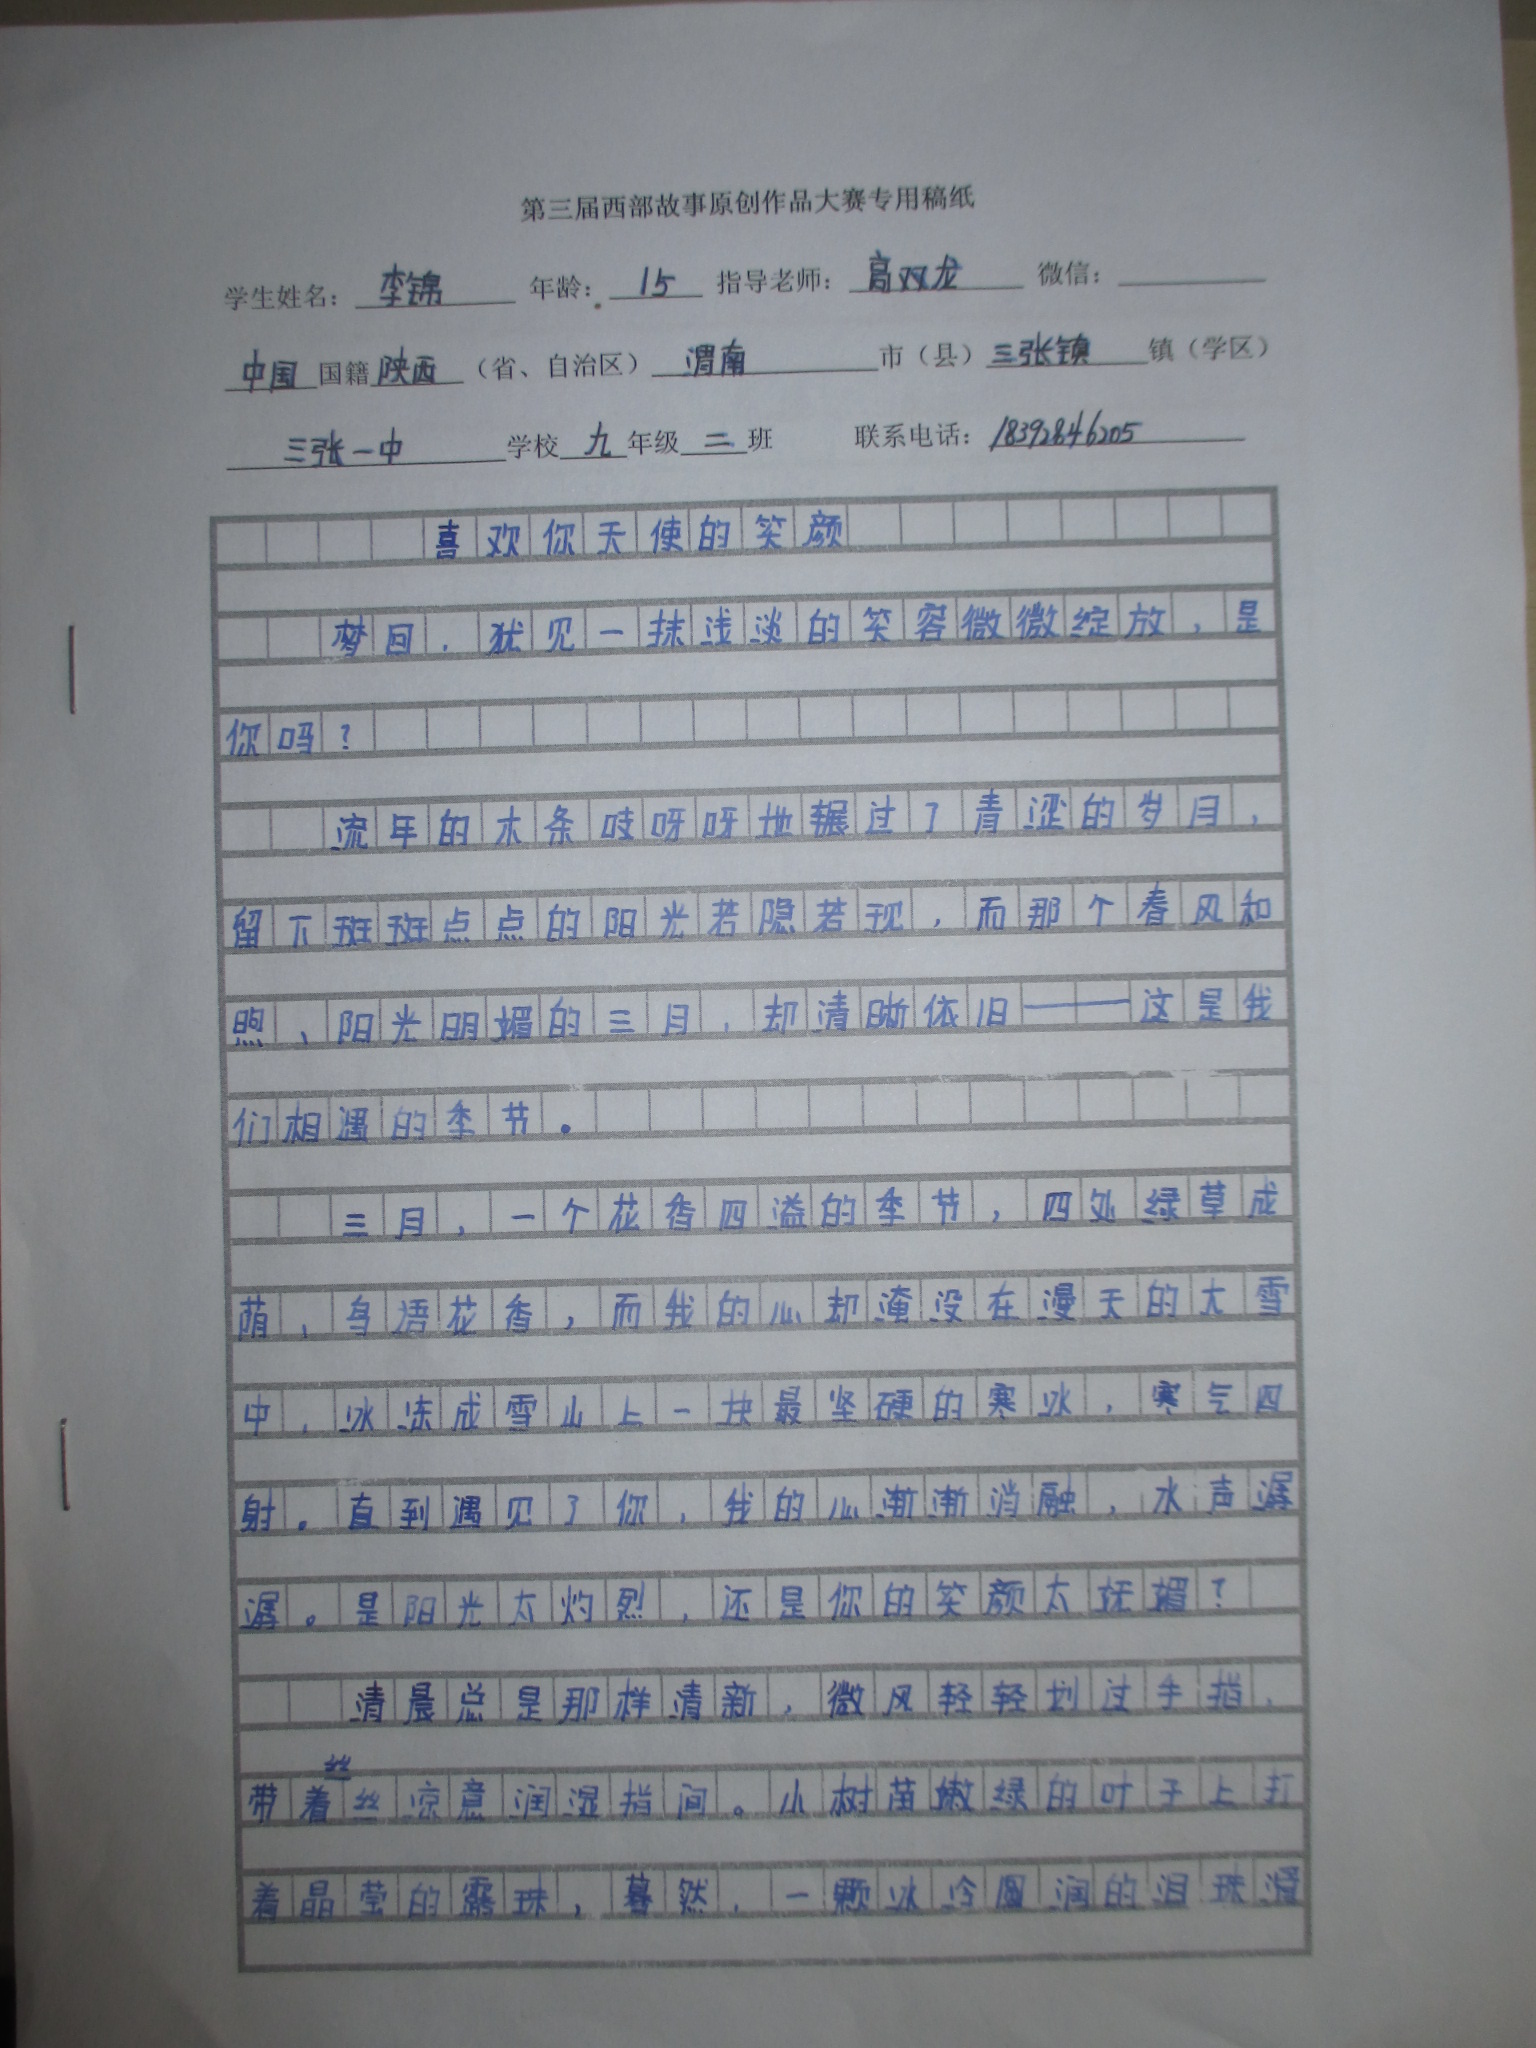 第三届西部故事原创作品大赛专用稿纸
学生姓名：李锦 年龄：15 指导老师：高双龙 微信：
中国国籍陕西（省、自治区）渭南市（县）三张镇镇（学区）
三张一中学校九年级二班 联系电话：18392846205
喜欢你天使的笑颜
梦回，犹见一抹浅淡的笑容微微绽放，是
你吗？
流年的木条吱呀呀地辗过了青涩的岁月，
留下斑斑点点的阳光若隐若现，而那个春风和
煦、阳光明媚的三月，却清晰依旧——这是我
们相遇的季节。
三月，一个花香四溢的季节，四处绿草成
荫、鸟语花香，而我的心却淹没在漫天的大雪
中，冰冻成雪山上一块最坚硬的寒冰，寒气四
射。直到遇见了你，我的心渐渐消融，水声潺
潺。是阳光太灼烈，还是你的笑颜太妩媚？
清晨总是那样清新，微风轻轻划过手指，
带着丝丝凉意润湿指间。小树苗嫩绿的叶子上打
着晶莹的露珠，蓦然，一颗冰冷圆润的泪珠